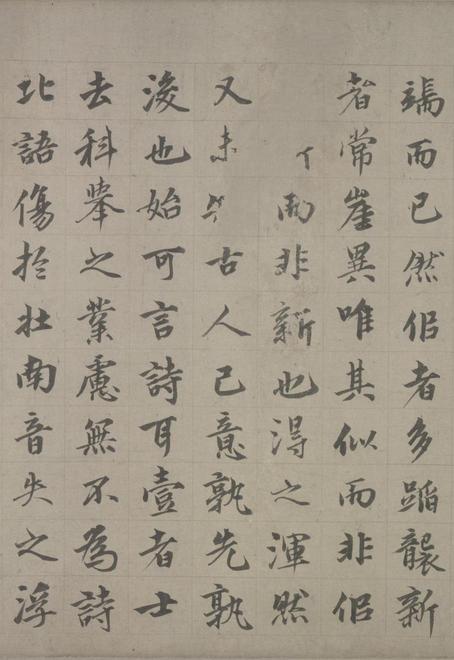 端而已然佀者多蹈襲新
者常崖異唯其似而非佀
而非新也得之渾然
又未古人己意孰先孰
後也始可言詩耳壹者士
去科舉之業慮無不為詩
北語傷扵壯南音失之浮